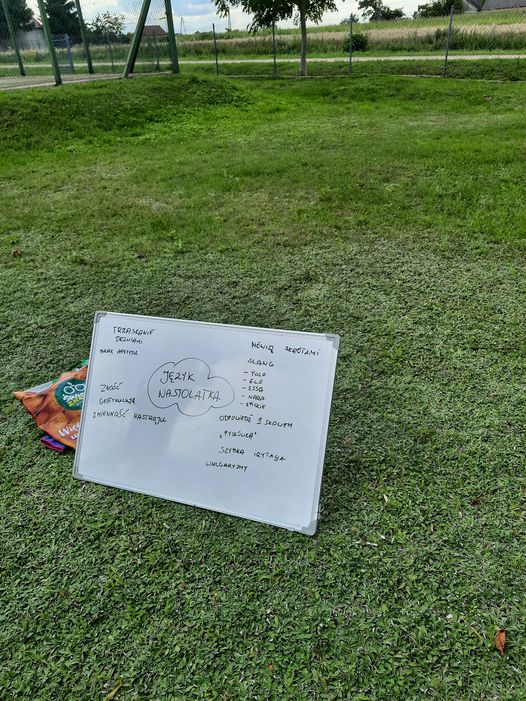 TRZASKANIE
DRZWIAMI
BRAK APETYTU
ZŁOŚĆ
GESTYKULUJĄ
ZMIENNOŚĆ NASTROJU
JĘZYK
NASTOLATKA
MÓWIĄ SKRÓTAMI
SLANG
- YOLO
- ELO
- ESSA
- NARA
ODPOWIEDŹ 1 SŁOWEM
"PYSKÓWKA"
SZYBKA IRYTACJA
WULGARYZMY